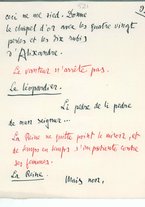 cire ne me sied. Donne
le chapel d'or avec les quatre vingt
perles et les dix rubis
d'Alexandre.
Le vanteur n'arrête pas.
Le léopardier.
Le pedre de la pedre
de mon seigner...
La Reine ne quitte point le miroir, et
de temps en temps s'impatiente contre
ses femmes.
La Reine.
Mais non,